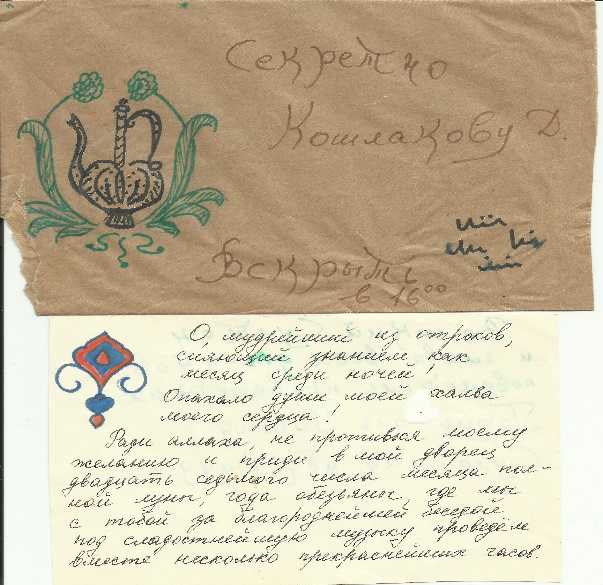 Секретно
Кошлакову Д.
Вскрыть
в 16⁰⁰
О, мудрейший из отроков,
сияющий знанием как
месяц среди ночей!
Опахало души моей, халва
моего сердца!
Ради аллаха, не противься моему
желанию и приди в мой дворец
двадцать седьмого числа месяца пол-
ной луны, года обезьяны, где мы
с тобой за благороднейшей беседой
под сладостнейшую музыку проведём
вместе несколько прекраснейших часов.